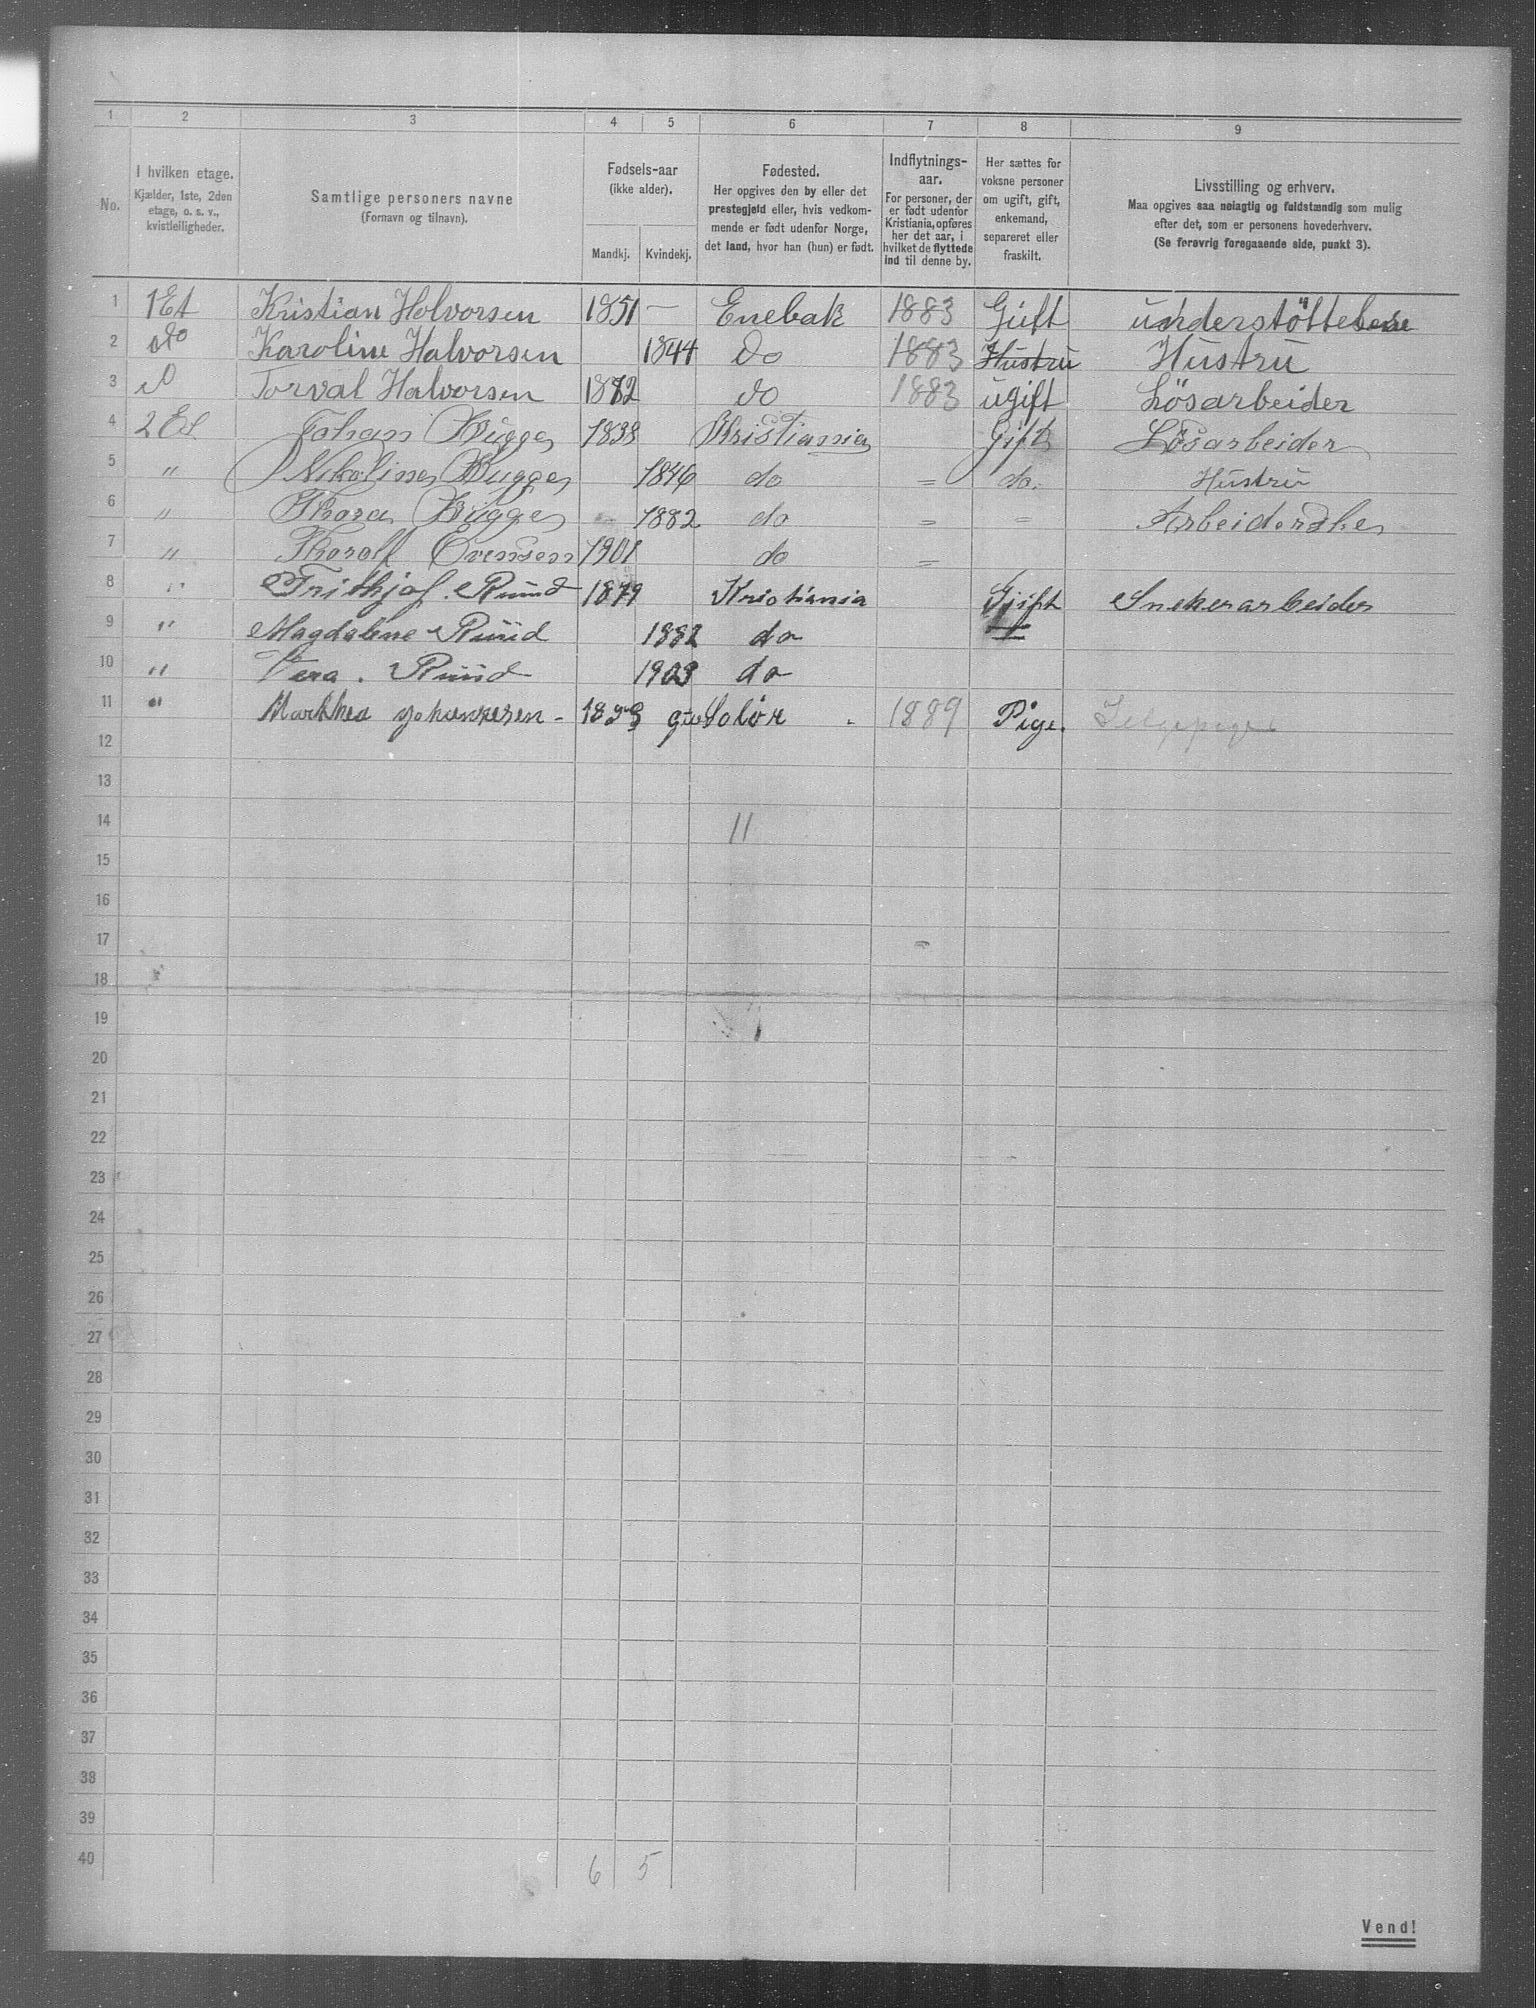 1 2 3 4 5 6 7 8 9
No.
I hvilken etage.
Kjælder, 1ste, 2den
etage, o. s. v.,
kvistleiligheder.
Samtlige personers navne
(Fornavn og tilnavn).
Fødsels-aar
(ikke alder).
Mandkj. Kvindekj.
Fødested.
Her opgives den by eller det
prestegjeld eller, hvis vedkom-
mende er født udenfor Norge,
det land, hvor han (hun) er født.
Indflytnings-
aar.
For personer, der
er født udenfor
Kristiania, opføres
her det aar, i
hvilket de flyttede
ind til denne by.
Her sættes for
voksne personer
om ugift, gift,
enkemand,
separeret eller
fraskilt.
Livsstilling og erhverv.
Maa opgives saa nøiagtig og fuldstændig som mulig
efter det, som er personens hovederhverv.
(Se forøvrig foregaaende side, punkt 3).
1 1 Et Kristian Holvorsen 1851 — Enebak 1883 Gift
2 do Karoline Halvorsen 1844 do 1883 Hustru Hustru
3 Torval Halvorsen 1882 do 1883 ugift Lösarbeider
4 2 Et Johan Bugge 1838 Kristiania Gift Løsarbeider
5 " Nikoline Bugge 1846 do = do. Hustru
6 " Thora Bugge 1882 do = =
7 " Thorolf Evensen 1901 do =
8 " Frithjof Ruud 1879 Kristiania Gift Snekerarbeider
9 " Magdalene Ruud 1882 do
10 " Vera. Ruud 1903 do
11 " Solör 1889 Pige.
12
13
14 11
15
16
17
18
19
20
21
22
23
24
25
26
27
28
29
30
31
32
33
34
35
36
37
38
39
40 6 5
Vend!